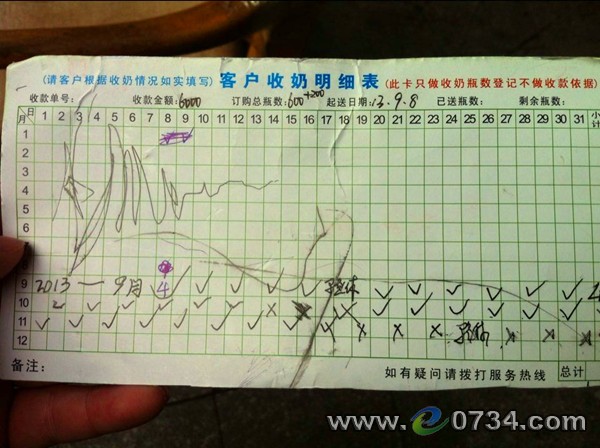 客户收奶明细表
(请客户根据收奶情况如实填写)
(此卡只做收奶瓶数登记不做收款依据)
收款单号: 收款金额:6000 订购总瓶数:600+200 起送日期:13.9.8 已送瓶数: 剩余瓶数:
日 1 2 3 4 5 6 7 8 9 10 11 12 13 14 15 16 17 18 19 20 21 22 23 24 25 26 27 28 29 30 31 小计
月
1
2
3
4
5
6
7
8
9 2013 — 9月 4 ✓ ✓ ✓ ✓ ✓ ✓ ✓ ✓ ✓ ✓ ✓
10
11
12
备注: 如有疑问请拨打服务热线 总计
www.e0734.com